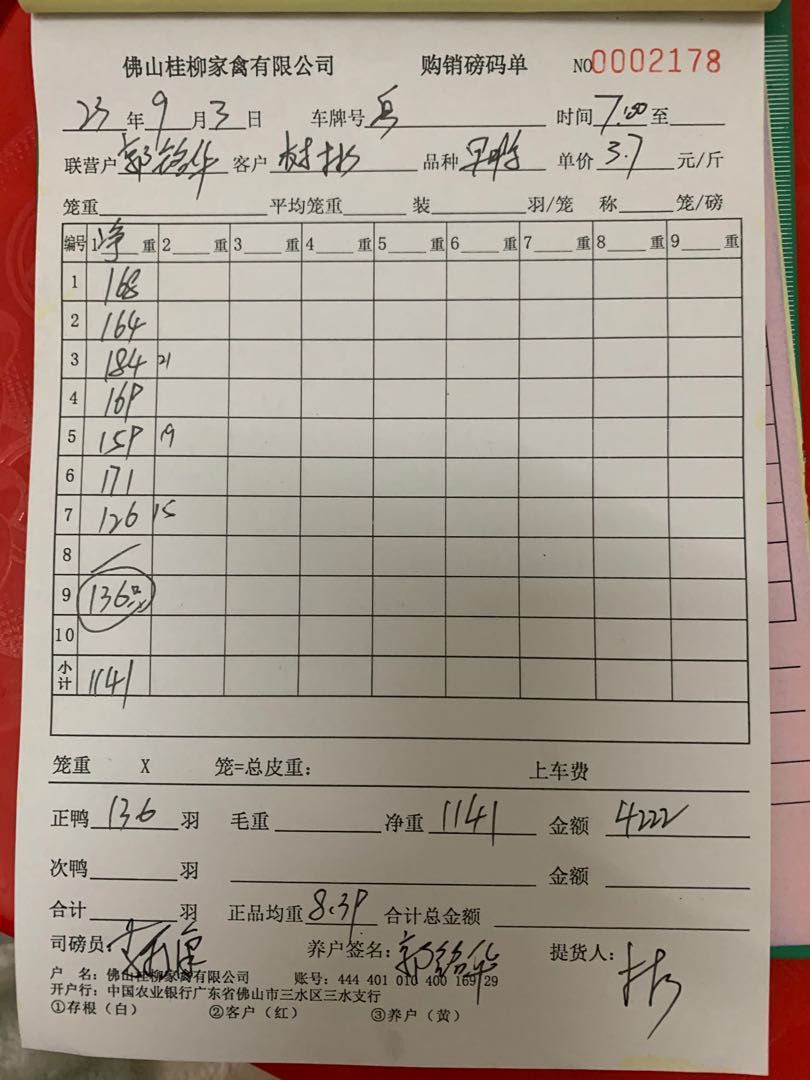 佛山桂柳家禽有限公司 购销磅码单 NO0002178
23年9月3日 车牌号 时间7.00至
联营户郭铭华 客户 品种 单价3.7元/斤
笼重 平均笼重 装 羽/笼 称 笼/磅
编号 1净重 2 重 3 重 4 重 5 重 6 重 7 重 8 重 9 重
1 168
2 164
3 184 21
4 169
5 159 19
6 171
7 126 15
8
9 136只
10
小计 1141
笼重 X 笼=总皮重: 上车费
正鸭136羽 毛重 净重1141 金额4222
次鸭 羽 金额
合计 羽 正品均重8.39 合计总金额
司磅员: 养户签名:郭铭华 提货人:
户 名:佛山桂柳家禽有限公司 账号:444 401 010 400 169 29
开户行:中国农业银行广东省佛山市三水区三水支行
①存根(白) ②客户(红) ③养户(黄)